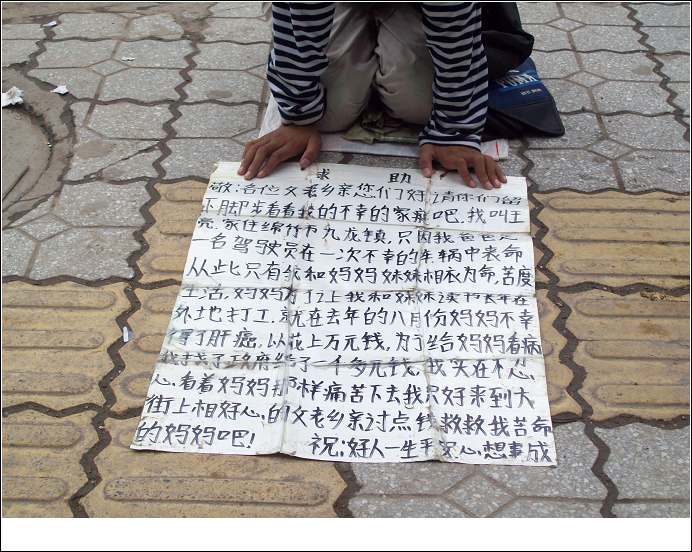 求 助
敬 父老乡亲您们好,请你们留
下脚步看看我的不幸的家庭吧.我叫王
亮,家住绵竹市九龙镇,只因我爸爸是
一名驾驶员在一次不幸的车祸中丧命
从此只有我和妈妈妹妹相衣为命,苦度
生活,妈妈为了让我和妹妹读书长年在
外地打工,就在去年的八月份妈妈不幸
得了肝癌,以花上万元钱,为了给妈妈看病
我找了政府给了一个多元钱,我实在不忍
心,看着妈妈那样痛苦下去我只好来到大
街上相好心,的父老乡亲讨点钱救救我苦命
的妈妈吧! 祝:好人一生平安心,想事成